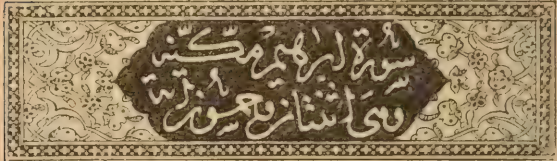 سورة ابرٰهيم مكيّة
وهى اثنتان وخمسون اية